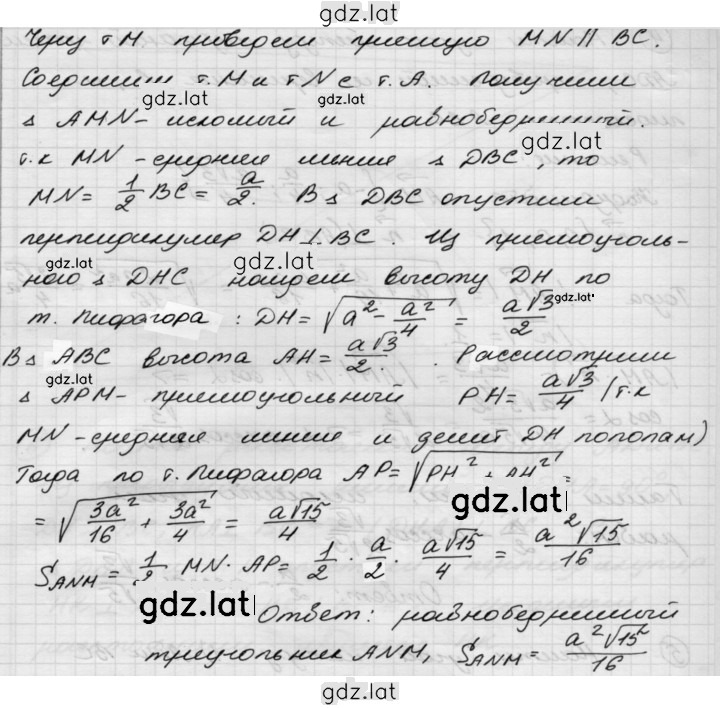 gdz.lat
Через т M проведем прямую MN || BC.
Соединим т. M и т N с т. A. Получим
gdz.lat gdz.lat
△ AMN - искомый и равнобедренный.
gdz.lat
т.к MN - средняя линия △ DBC, то
MN = 1/2 BC = a/2. В △ DBC опустим
перпендикуляр DH ⊥ BC. Из прямоуголь-
gdz.lat
ного △ DHC найдем высоту DH по
gdz.lat
т. Пифагора : DH = √(a² - a²/4) = a√3/2
В △ ABC высота AH = a√3/2. Рассмотрим
gdz.lat
△ APM - прямоугольный PH = a√3/4 (т.к
MN - средняя линия и делит DH пополам)
Тогда по т. Пифагора AP = √(PH² + AH²) =
gdz.lat
= √(3a²/16 + 3a²/4) = a√15/4
S ANM = 1/2 MN · AP = 1/2 · a/2 · a√15/4 = a²√15/16
gdz.lat
Ответ: равнобедренный
треугольник ANM, S ANM = a²√15/16
gdz.lat